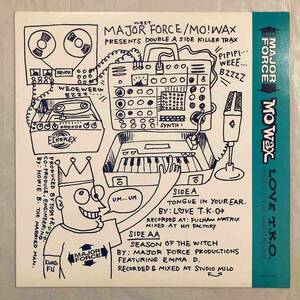 WEST
MAJOR FORCE/MO!WAX
PRESENTS DOUBLE A SIDE KILLER TRAX
PIPIPI--
WEEE...
BZZZZ
WEOEWEEW
BZZZZ...
SYNTH!
ECHOREX
UM...UM
SIDE A
TONGUE IN YOUR EAR.
BY: LOVE T.K.O.
RECORDED AT: FULHAM MATRIX
MIXED AT HIT FACTORY
SIDE AA
SEASON OF THE WITCH
BY: MAJOR FORCE PRODUCTIONS
FEATURING EMMA D.
RECORDED & MIXED AT STUDIO MILO
CO-PRODUCE, ENGINEERING
BY: HOWIE B. THE MARRIED MAN.
KUNG
FU
MAJOR
FORCE
MAJOR
FORCE
MO WAX
LOVE T.K.O.